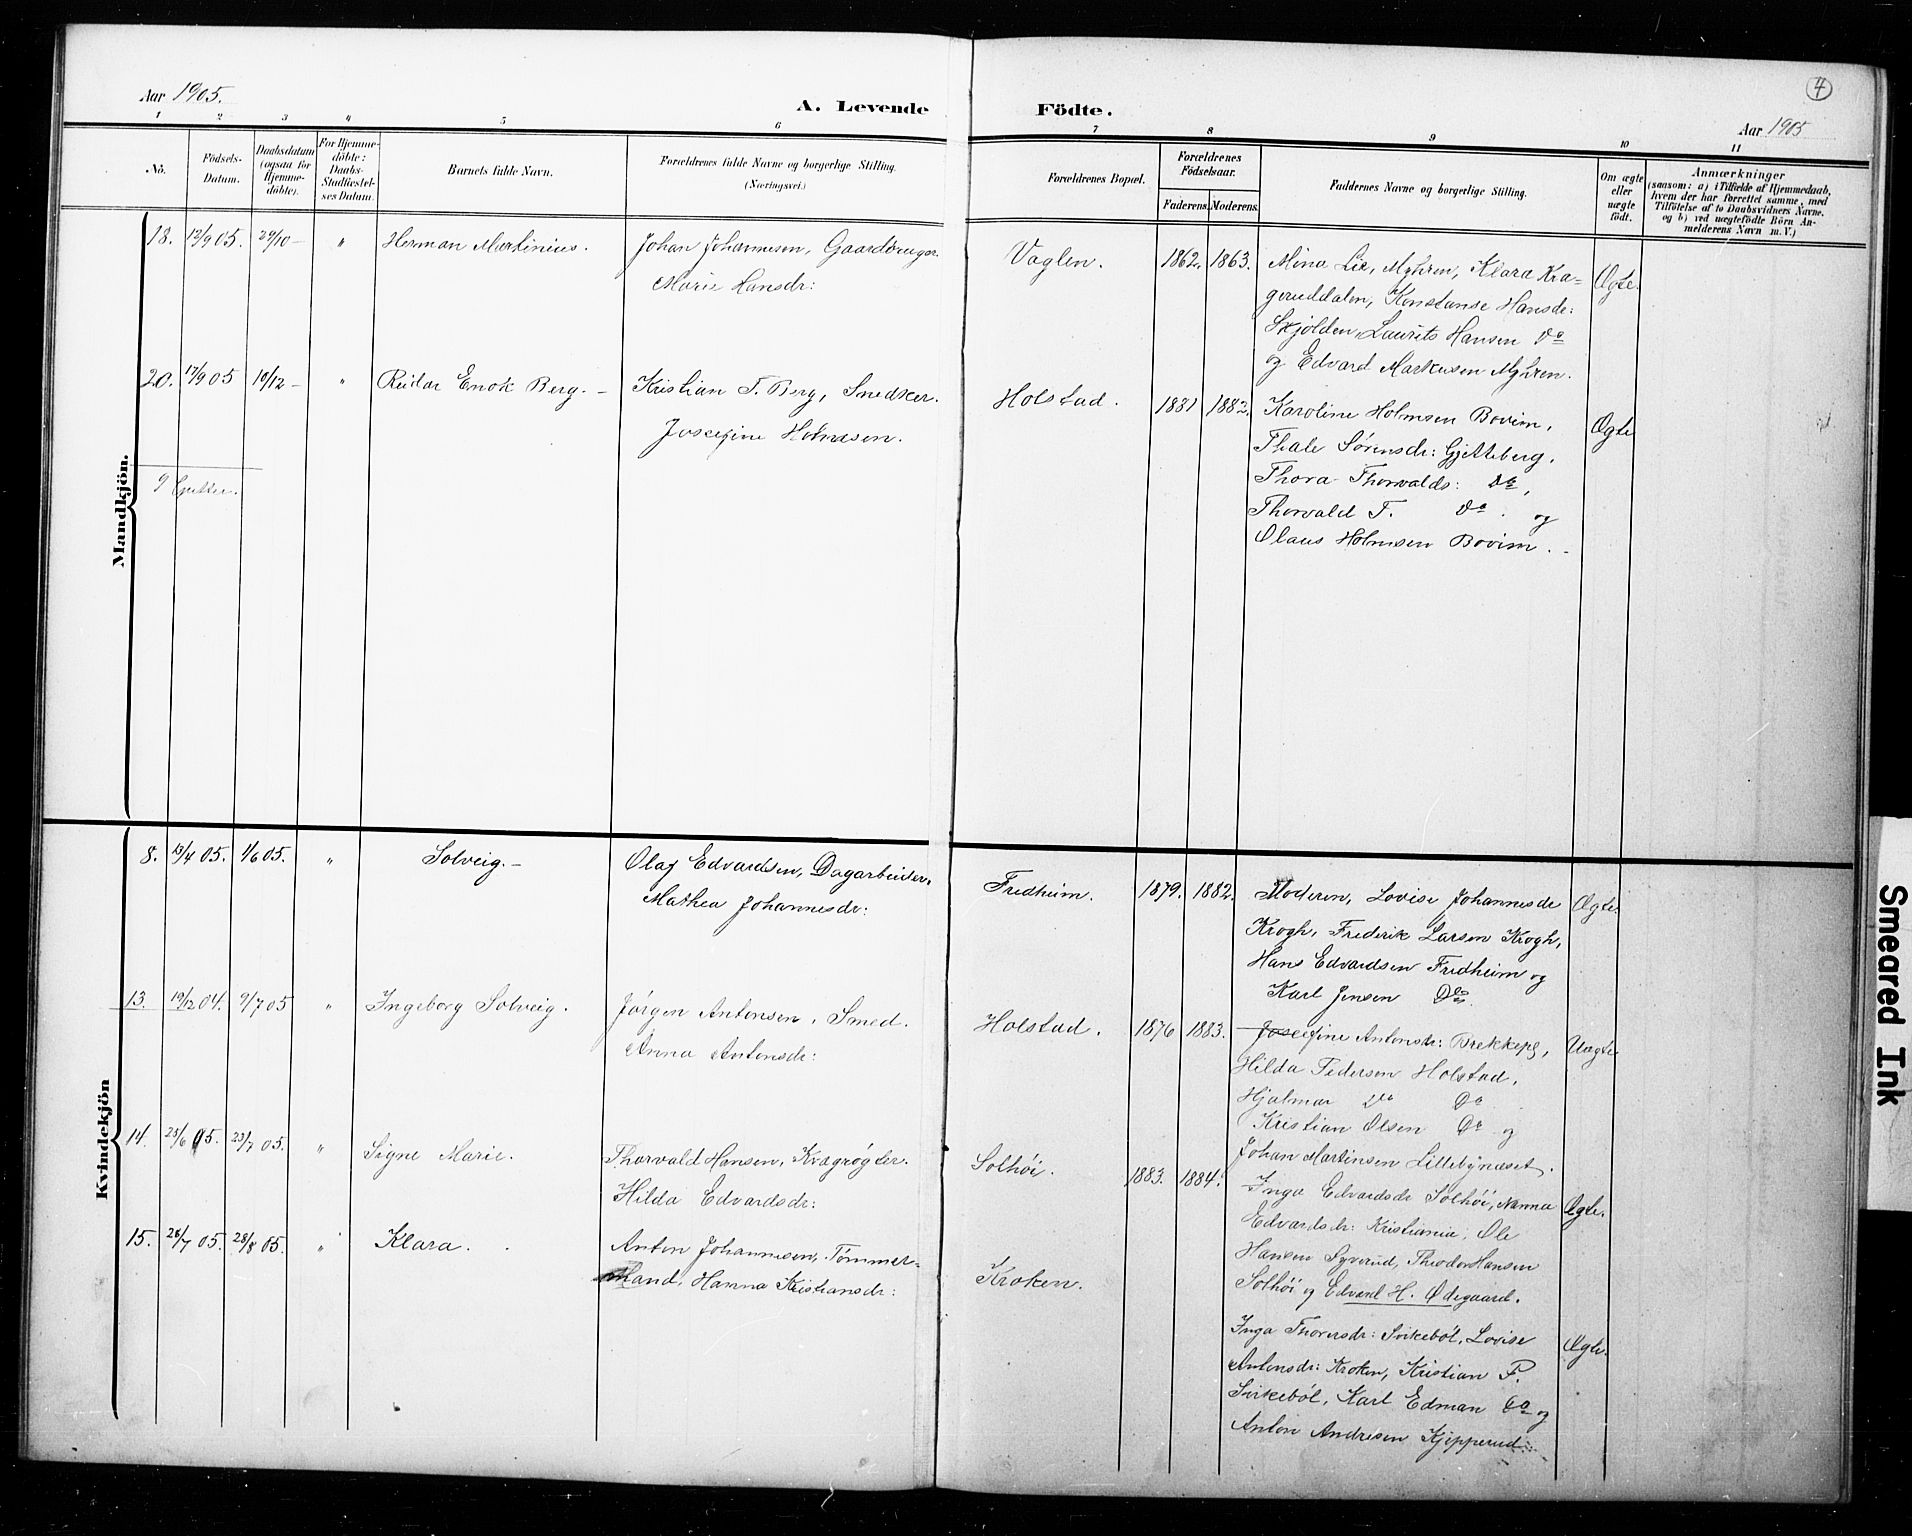 Aar 1905.
A. Levende
Födte.
4
Aar 1905
1 2 3 4 5 6 7 8 9 10 11
No.
Födsels-
Datum.
Daabsdatum
(ogsaa for
Hjemme-
döbte).
For Hjemme-
döbte:
Daabs-
Stadfæstel-
ses Datum.
Barnets fulde Navn.
Forældrenes fulde Navne og borgerlige Stilling.
(Næringsvei.)
Forældrenes Bopæl.
Forældrenes
Födselsaar.
Faderens. Moderens.
Faddernes Navne og borgerlige Stilling.
Om ægte
eller
uægte
födt.
Anmærkninger
(saasom: a) i Tilfælde af Hjemmedaab,
hvem der har forrettet samme, med
Tilföielse af to Daabsvidners Navne.
og b) ved uægtefödte Börn An-
melderens Navn m. V.)
Mandkjön.
18. 12/9 05. 29/10 – " Herman Martinius. Johan Johannesen, Gaardbruger.
Marie Hansdr:
Vaglen. 1862. 1863. Mina Lie, Myhren, Klara Kra=
geruddalen, Konstanse Hansdr:
Skjolden, Laurits Hansen Do
og Edvard Markusen Myhren.
Ægte.
20. 17/9 05 10/12 – " Reidar Enok Berg. – Kristian T. Berg, Snedker.
Josefine Holmsen.
Holstad. 1881 1882. Karoline Holmsen Bovim,
Thale Sørensdr: Gjetteberg.
Thora Thorvalds: Do,
Thorvald T. Do. og
Olaus Holmsen Bovim. –
Ægte
9 Gutter.
Kvindekjön
8. 13/4 05. 1/6 05. " Solveig. – Olaf Edvardsen, Dagarbeider.
Mathea Johannesdr:
Fredheim. 1879. 1882. Moderen, Lovise Johannesdr
Krogh, Frederik Larsen Krogh,
Hans Edvardsen Fredheim og
Karl Jensen Do
Ægte.
13. 19/12 04. 9/7 05 " Ingeborg Solveig. Jørgen Antonsen, Smed.
Anna Antonsdr:
Holstad. 1876 1883. Josefine Antonsdr: Brekkepl,
Hilda Pedersen Holstad.
Hjalmar Do Do
Kristian Olsen Do og
Johan Martinsen Lillebynæset.
Uægte
14. 25/6 05. 23/7 05. " Signe Marie. Thorvald Hansen, Kvægrøgter.
Hilda Edvardsdr:
Solhöi. 1883. 1884. Inga Edvardsdr Solhöi, Nanna
Edvardsdr: Kristiania, Ole
Hansen Syverud, Theodor Hansen
Solhöi og Edvard H. Ødegaard.
Ægte.
15. 26/7 05. 28/8 05. " Klara. Anton Johannesen, Tømmer=
mand, Hanna Kristiansdr:
Kroken. Inga Thoresdr: Svikeböl, Lovise
Antonsdr: Kroken, Kristian P.
Svikeböl, Karl Edman Do og
Anton Andresen Kjepperud.
Ægte.
Smeared Ink